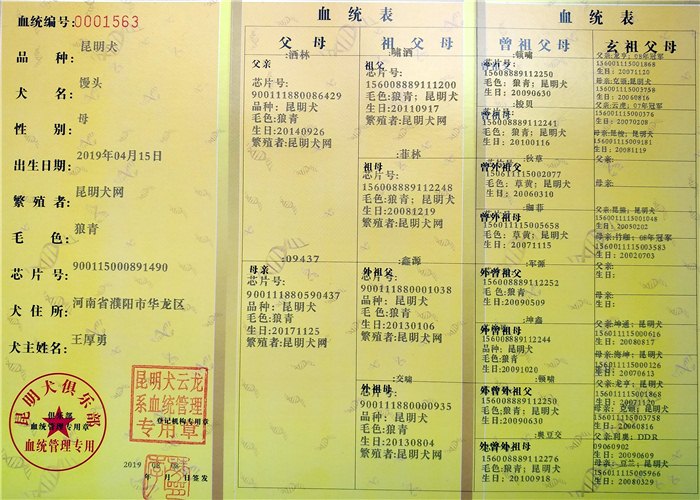 血统编号:0001563
品 种: 昆明犬
犬 名: 馒头
性 别: 母
出生日期: 2019年04月15日
繁 殖 者: 昆明犬网
毛 色: 狼青
芯 片 号: 900115000891490
犬 住 所: 河南省濮阳市华龙区
犬主姓名: 王厚勇
昆明犬俱乐部
俱乐部
血统管理专用章
血统管理专用
昆明犬云龙
系血统管理
登记机构专用章
专用章
2019 08 08
年 月 日签发
血统表
父母
:酒林
父亲
芯片号:
900111880086429
品种: 昆明犬
毛色:狼青
生日:20140926
繁殖者:昆明犬网
:09437
母亲:
芯片号:
900111880590437
品种: 昆明犬
毛色: 狼青
生日:20171125
繁殖者:昆明犬网
祖父母
:啸酒
祖父
芯片号:
156008889111200
毛色:狼青; 昆明犬
生日:20110917
繁殖者:昆明犬网
:菲林
祖母
芯片号:
156008889112248
毛色:狼青; 昆明犬
生日:20081219
繁殖者:昆明犬网
:鑫源
外祖父
芯片号:
900111880001038
毛色:狼青; 昆明犬
生日:20130106
繁殖者:昆明犬网
:交啸
外祖母
芯片号:
900111880000935
毛色:狼青; 昆明犬
生日:20130804
繁殖者:昆明犬网
血统表
曾祖父母
:顿啸
曾祖父
芯片号:
156008889112250
毛色: 狼青; 昆明犬
生日: 20090630
:梭贝
曾祖母
芯片号:
156008889112241
毛色: 狼青; 昆明犬
生日: 20100116
:秋草
曾外祖父
156111115002077
毛色: 草黄; 昆明犬
生日: 20060310
:珈菲
曾外祖母
156001115005658
毛色: 草黄; 昆明犬
生日: 20071115
:军源
外曾祖父
156008889112252
毛色: 狼青; 昆明犬
生日: 20090509
:坤鑫
外曾祖母
品种: 昆明犬
156008889112244
毛色: 狼青
生日: 20091020
:顿啸
外曾外祖父
156008889112250
毛色: 狼青; 昆明犬
生日: 20090630
:奥豆交
外曾外祖母
156008889112276
毛色: 狼青; 昆明犬
生日: 20100918
玄祖父母
父亲:龙亨; 08年冠军
156001115001868
生日: 20071120
母亲:克顿; 昆明犬
156001115003758
生日: 20060816
父亲:云虎; 07年冠军
156001115000376
生日: 20070208
母亲:昆梭; 昆明犬
156001115009181
生日: 20081119
父亲:
母亲:
156001115001048
生日: 20050202
156001115003583
生日: 20020703
父亲:
生日:
母亲:
生日:
父亲:坤通; 昆明犬
156001115000616
生日: 20061204
母亲:海坤; 昆明犬
156001115000160
生日: 20070613
父亲:龙亨; 昆明犬
156001115001868
生日: 20071120
母亲: 克顿; 昆明犬
156001115003758
生日: 20060816
父亲:利奥; DDR
09060902
生日: 20090609
母亲: 豆兰; 昆明犬
生日: 20080329